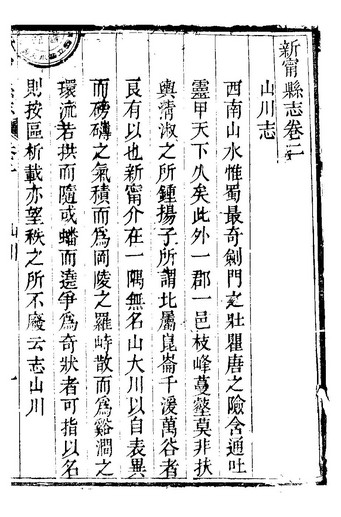 新甯縣志卷二
山川志
西南山水惟蜀最奇劍門之壯瞿唐之險含通吐
靈甲天下久矣此外一郡一邑枝峰蔓壑莫非扶
輿清淑之所鍾揚子所謂北屬崑崙千湲萬谷者
良有以也新甯介在一隅無名山大川以自表異
而磅礴之氣積而爲岡陵之羅峙散而爲谿澗之
環流若拱而隨或蟠而遶爭爲奇狀者可指以名
則按區析載亦望秩之所不廢云志山川
山川